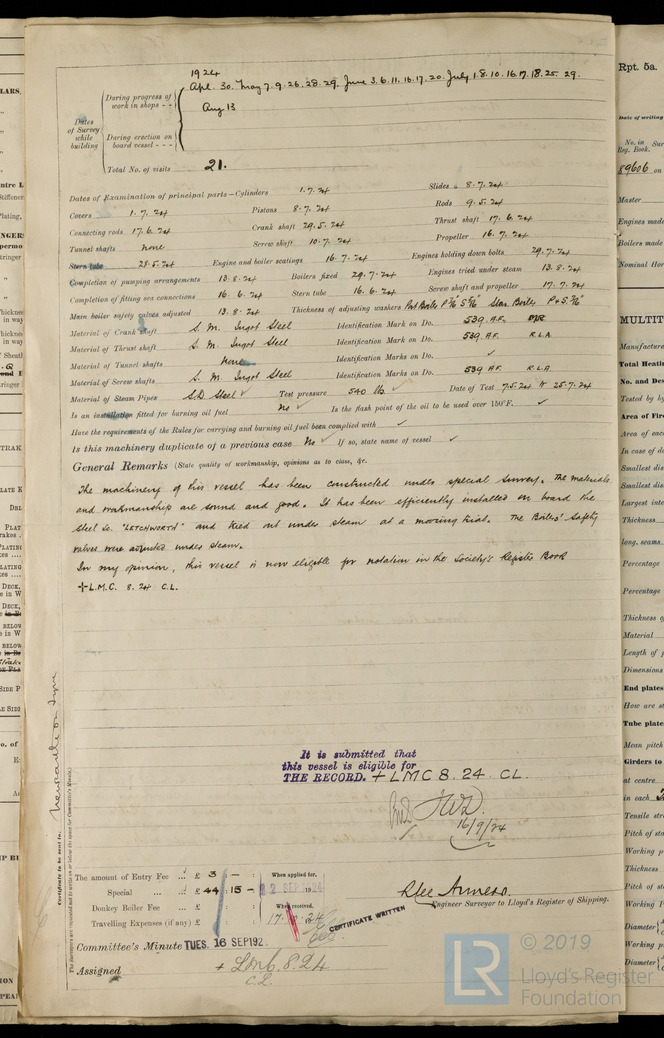 1924
Dates of Survey while building
During progress of work in shops - - Apl. 30. May 7. 9. 26. 28. 29. June 3. 6. 11. 16. 17. 20. July 1. 8. 10. 16. 17. 18. 25. 29.
Aug 13
During erection on board vessel - - -
Total No. of visits 21.
Dates of Examination of principal parts—Cylinders 1.7.24 Slides 8.7.24
Covers 1.7.24 Pistons 8.7.24 Rods 9.5.24
Connecting rods 17.6.24 Crank shaft 29.5.24 Thrust shaft 17.6.24
Tunnel shafts None Screw shaft 10.7.24 Propeller 16.7.24
Stern tube 28.5.24 Engine and boiler seatings 16.7.24 Engines holding down bolts 29.7.24
Completion of pumping arrangements 13.8.24 Boilers fixed 29.7.24 Engines tried under steam 13.8.24
Completion of fitting sea connections 16.6.24 Stern tube 16.6.24 Screw shaft and propeller 17.7.24
Main boiler safety valves adjusted 13.8.24 Thickness of adjusting washers Port Boiler Star Boiler
Material of Crank shaft S. M. Ingot Steel Identification Mark on Do. 539 A.F.
Material of Thrust shaft S. M. Ingot Steel Identification Mark on Do. 539 A.F. R.L.A
Material of Tunnel shafts None Identification Marks on Do. ✓
Material of Screw shafts S. M. Ingot Steel Identification Marks on Do. 539 A.F. R.L.A.
Material of Steam Pipes S.D. Steel ✓ Test pressure 540 lbs ✓ Date of Test 7.5.24 & 25.7.24
Is an installation fitted for burning oil fuel No ✓ Is the flash point of the oil to be used over 150°F. ✓
Have the requirements of the Rules for carrying and burning oil fuel been complied with ✓
Is this machinery duplicate of a previous case No ✓ If so, state name of vessel ✓
General Remarks (State quality of workmanship, opinions as to class, &c.
The machinery of this vessel has been constructed under special survey. The materials
and workmanship are sound and good. It has been efficiently installed on board the
Steel Sc. "LETCHWORTH" and tried out under steam at a mooring trial. The Boilers' Safety
valves were adjusted under steam.
In my opinion, this vessel is now eligible for notation in the Society's Register Book
+L.M.C. 8.24 C.L.
It is submitted that
this vessel is eligible for
THE RECORD. + LMC 8.24 CL.
16/9/24
The amount of Entry Fee ... £ 3 : - : When applied for,
Special ... £ 44 : 15 - 22 SEP 1924
Donkey Boiler Fee ... £ : : When received,
Travelling Expenses (if any) £ : :
CERTIFICATE WRITTEN
Engineer Surveyor to Lloyd's Register of Shipping.
Committee's Minute TUES. 16 SEP 192
Assigned + LMC 8.24
C.L.
Certificate to be sent to Newcastle on Tyne
Rpt. 5a.
Date of writing
No. in Reg. Book.
89606 on
Master
Engines made
Boilers made
Nominal Hor
MULTIT
Manufacture
Total Heati
No. and Des
Tested by
Area of Fir
Area of eac
In case of d
Smallest dis
Smallest dis
Largest inte
Thickness
long. seams
Percentage
Percentage
Thickness of
Material
Length of
Dimensions
End plates
How are st
Tube plate
Mean pitch
Girders to
at centre
in each
Tensile str
Pitch of sta
Working p
Thickness
Pitch of st
Working P
Diameter
Working p
Diameter
LR © 2019
Lloyd's Register
Foundation